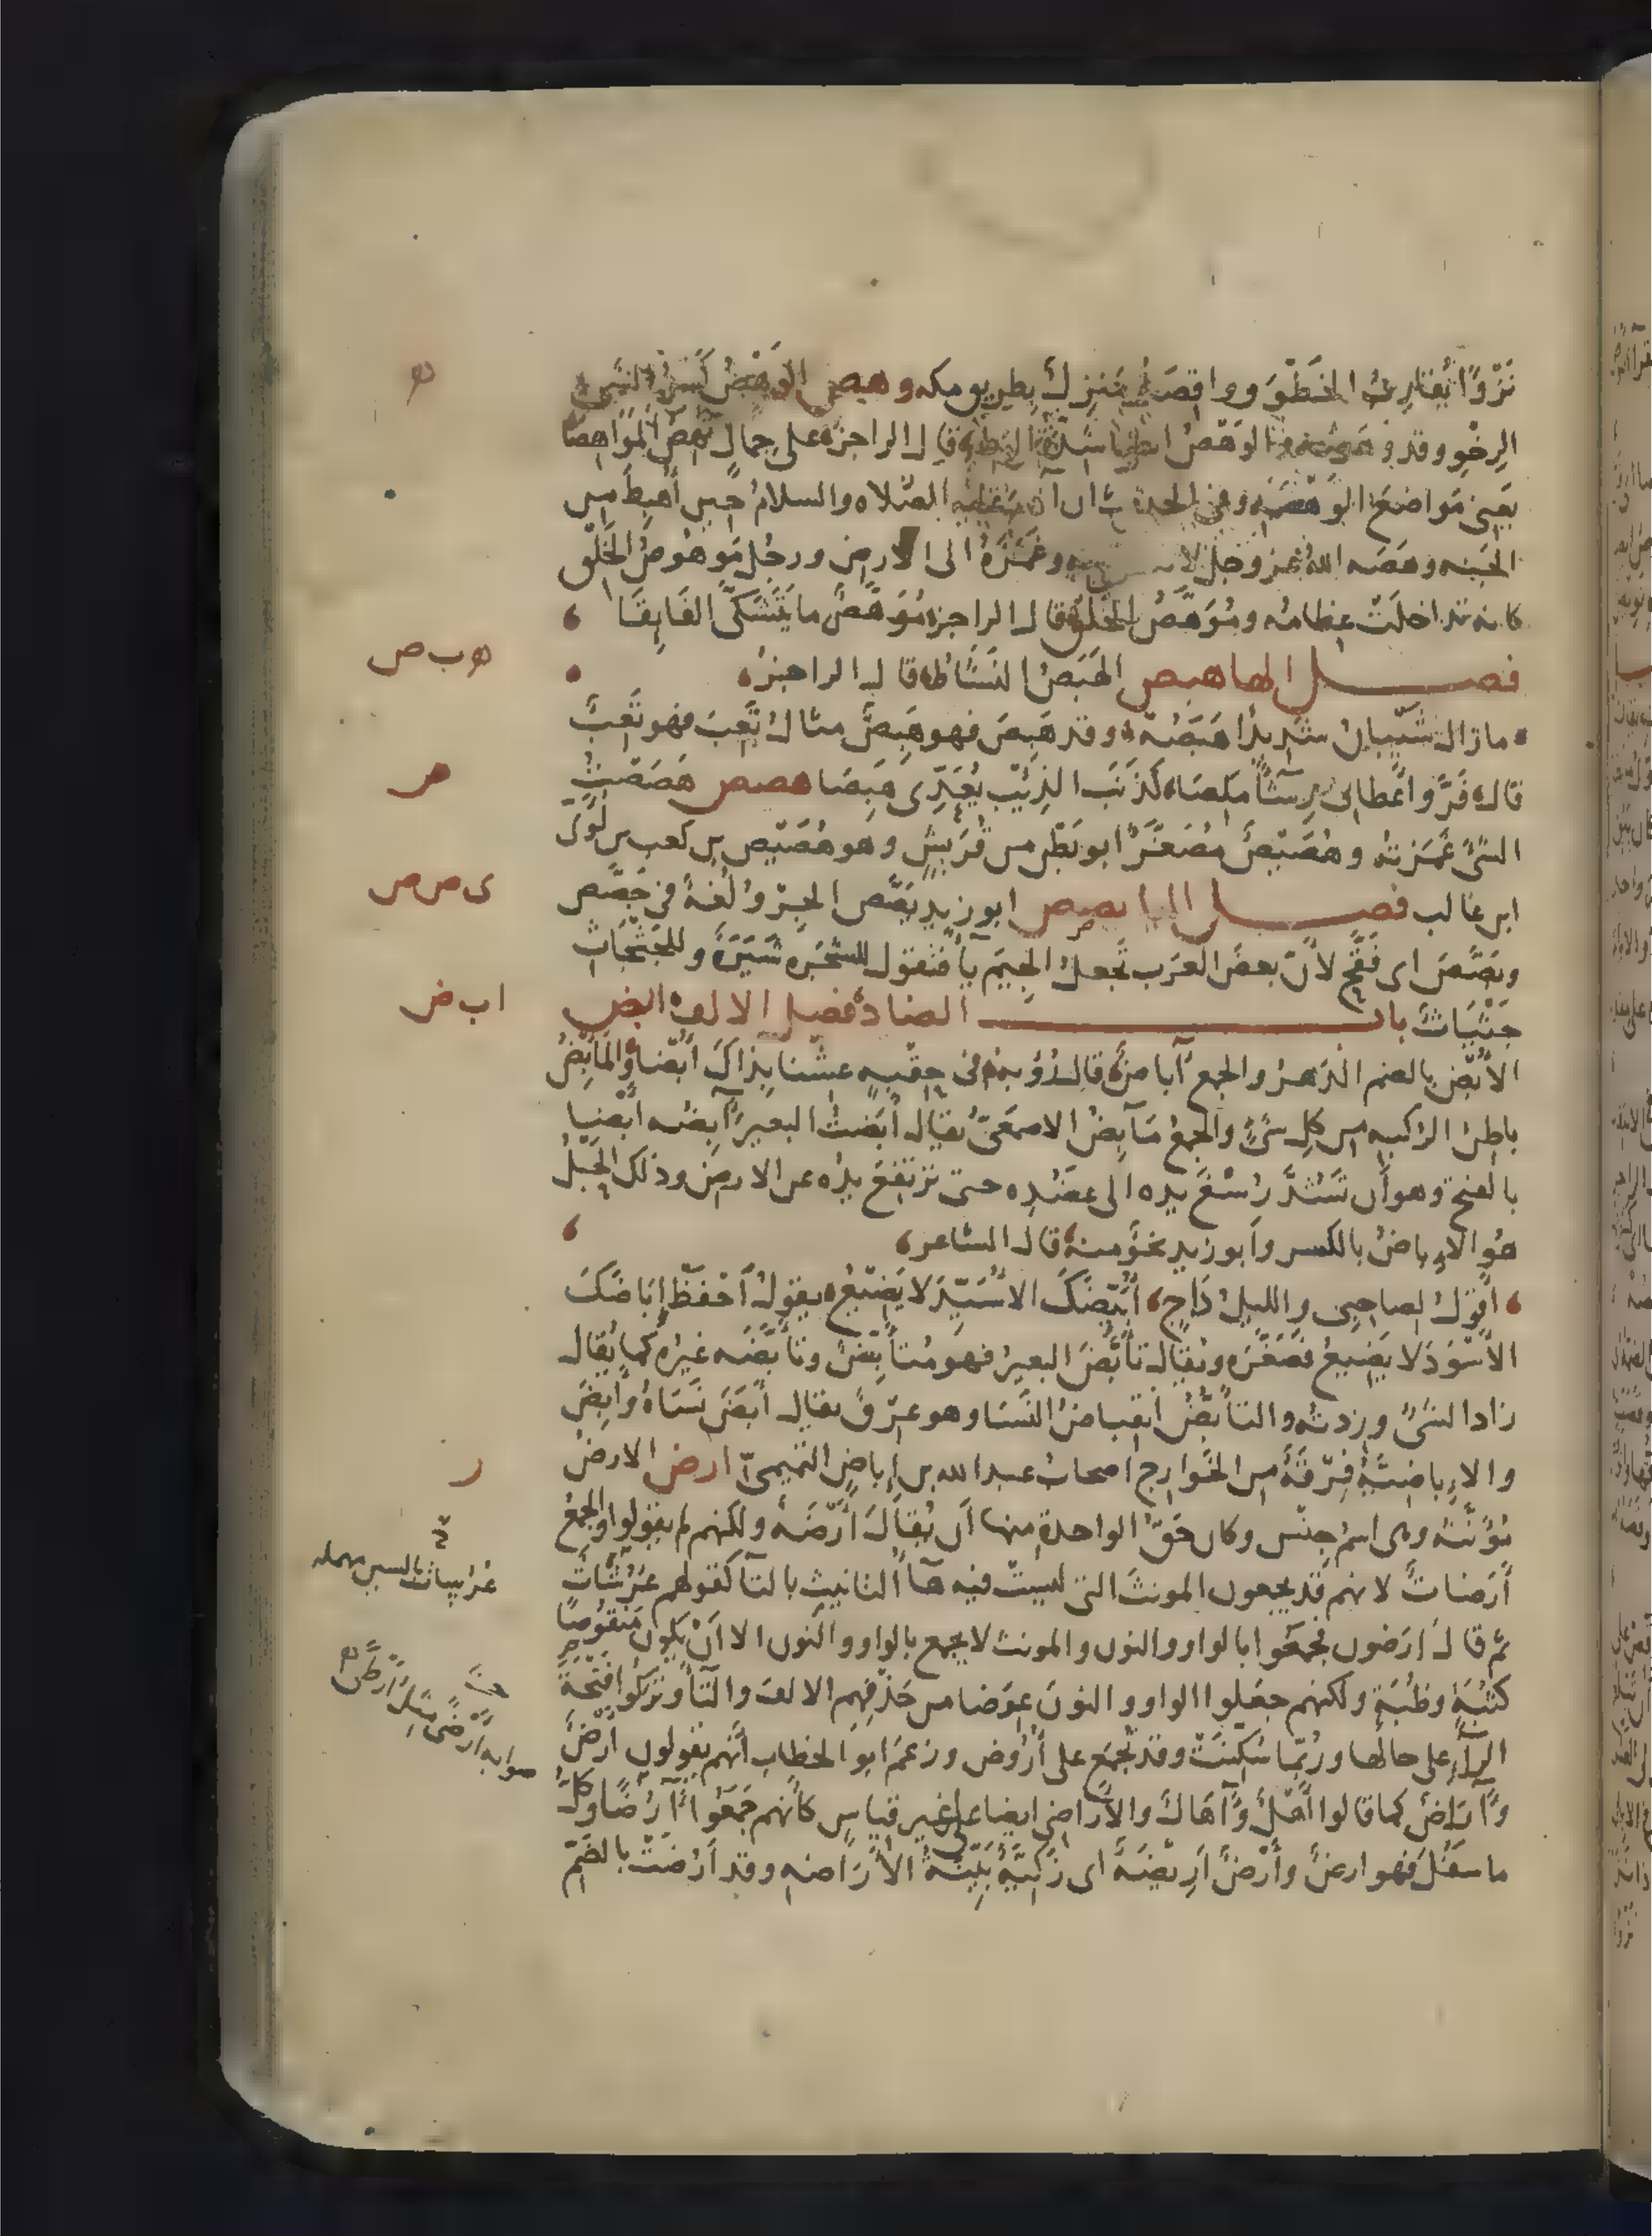 نَزْوًا يُقَارِبُ الخَطْوَ وواقِصَةُ مَنزِلٌ بِطريق مكه وهص الوَهْصُ كَسرُ الشَّىءِ
الرِخْوِ وقد وَهَصَهُ والوَهْصُ ايضًا شدّةُ الوَطْءِ قال الراجز على جِمالٍ تَهِصُ المَوَاهِصَا
يَعنِى مَواضِعَ الوَهْصَةِ وفى الحديث ان آدم عليه الصَّلاه والسلامُ حِين أُهبِطَ مِن
الجَنه وهَصَه اللهُ عز وجل وغَمَزَهُ الى الارض ورجُلٌ مَوهُوصُ الخَلْقِ
كانه تداخلَتْ عِظامُه ومُوَهَّصُ الخَلْقِ قال الراجز مُوَهَّصٌ ما يَتَشَكَّى الفَائِقَا
فصل الها هبص الهَبَصُ النَشَاطُ قال الراجز
ما زال شَيْبانُ شَدِيدًا هَبَصُهْ وقد هَبِصَ فهو هَبِصٌ مثال تَعِبَ فهو تَعِبٌ
قال فَرَّ واعْطانِى رِشَآءً مَلِصَا كَذَنَبِ الذِئْبِ يُعَدِّى هَبِصَا هصص هَصَصْتُ
الشَىْءَ غَمَزتُه وهُصَيْصٌ مُصَغَّرٌ ابو بَطْن من قُرَيشٍ وهو هُصَيْص بن كعب بن لُؤىّ
ابن غالب فصل اليا يصص ابو زيدٍ يَصَّصَ الجِرْوُ لُغةٌ فى جَصَّص
وبَصَّصَ اى فَقَّحَ لأنّ بعضَ العَرَب تَجعلُ الجِيمَ ياءً فتقول للشَّجَره شَيَرَةٌ وللجَثْجَاثِ
جَثْيَاثٌ باب الضاد فصل الالف ابض
الأُبْضُ بالضم الدَهرُ والجمع آباضٌ قال رُؤبه فى حِقْبهٍ عِشْنا بِذاكَ أُبْضَا والمَأْبِضُ
باطِنُ الرُكبه من كلِ شئٍ والجمعُ مَآبِضُ الاصمَعِىّ يقال أَبَضْتُ البعيرَ آبِضُه أَبْضًا
بالفتح وهو أن تَشُدَّ رُسْغَ يده الى عضُدِه حتى تَرتَفِعَ يدُه عن الارض وذلك الحَبْلُ
هُوَ الإِباضُ بالكسر وأبو زيد نحوٌ منه قال الشاعر
أقولُ لصاحِبى والليلُ دَاجٍ أُبَيِّضَكَ الأُسَيِّدَ لا يَضِيعُ يقول أَحْفَظْ إِبَاضَكَ
الأَسْوَدَ لا يَضِيعُ فصَغَّرَه ويُقال تأَبَّضَ البعيرُ فهو مُتأَبِّضٌ وتأَبَّضَه غيرُه كما يُقال
زاد الشَىْءُ وزدتُه والتأَبُّضُ انقباضُ النَسَا وهو عِرْقٌ يقال أَبَضَ نَسَاهُ وأَبِضَ
والإِباضِيَّةُ فِرْقَةٌ من الخَوارِج اصحابُ عبد الله بن إِباضٍ التميمىّ ارض الارضُ
مُؤَنَّثه وهى اسمُ جِنْس وكان حَقُّ الواحدةِ مِنها أن يُقَالَ أَرْضَةٌ ولكنهم لم يقولوا والجَمعُ
أَرَضاتٌ لانهم قد يجمعون المونث التى ليست فيه هآءُ التانيث بالتآ كقولهم عُرُشَاتٌ
ثمّ قالوا أرَضُون فجمَعُوا بالواو والنون والمونث لا يجمع بالواو والنون الا أنْ يكون مَنقُوصًا
كَثُبَةٍ وظُبَةٍ ولكنهم جعَلوا الواو والنون عِوَضا من حَذْفِهِم الالفَ والتآءَ وتركُوا فَتْحَةَ
الرآءِ على حالها ورُبَّما سُكِّنَتْ وقد تُجمَع على أُرُوض وزعمَ ابو الخطاب أنّهم يقولون أَرْضٌ
وآرَاضٌ كما قالوا أَهْلٌ وآهَالٌ والأَراضِى ايضا على غير قياسٍ كأنهم جَمَعُوا آرُضًا وكلُّ
ما سفَلَ فهو ارضٌ وأَرْضٌ أَرِيْضَةٌ اى زَكِيَّةٌ بَيِّنَةُ الأَرَاضه وقد أَرُضَتْ بالضَمّ
ه
ه ب ص
ص
ى ص ص
ا ب ض
ر
عُرُيسات بالسين مهمله
صوابه أَرْضٌ مثل أَرْطى